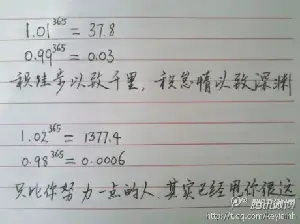 1.01³⁶⁵ = 37.8
0.99³⁶⁵ = 0.03
积跬步以致千里，积怠惰以致深渊
1.02³⁶⁵ = 1377.4
0.98³⁶⁵ = 0.0006
只比你努力一点的人，其实已经甩你很远
腾讯微博